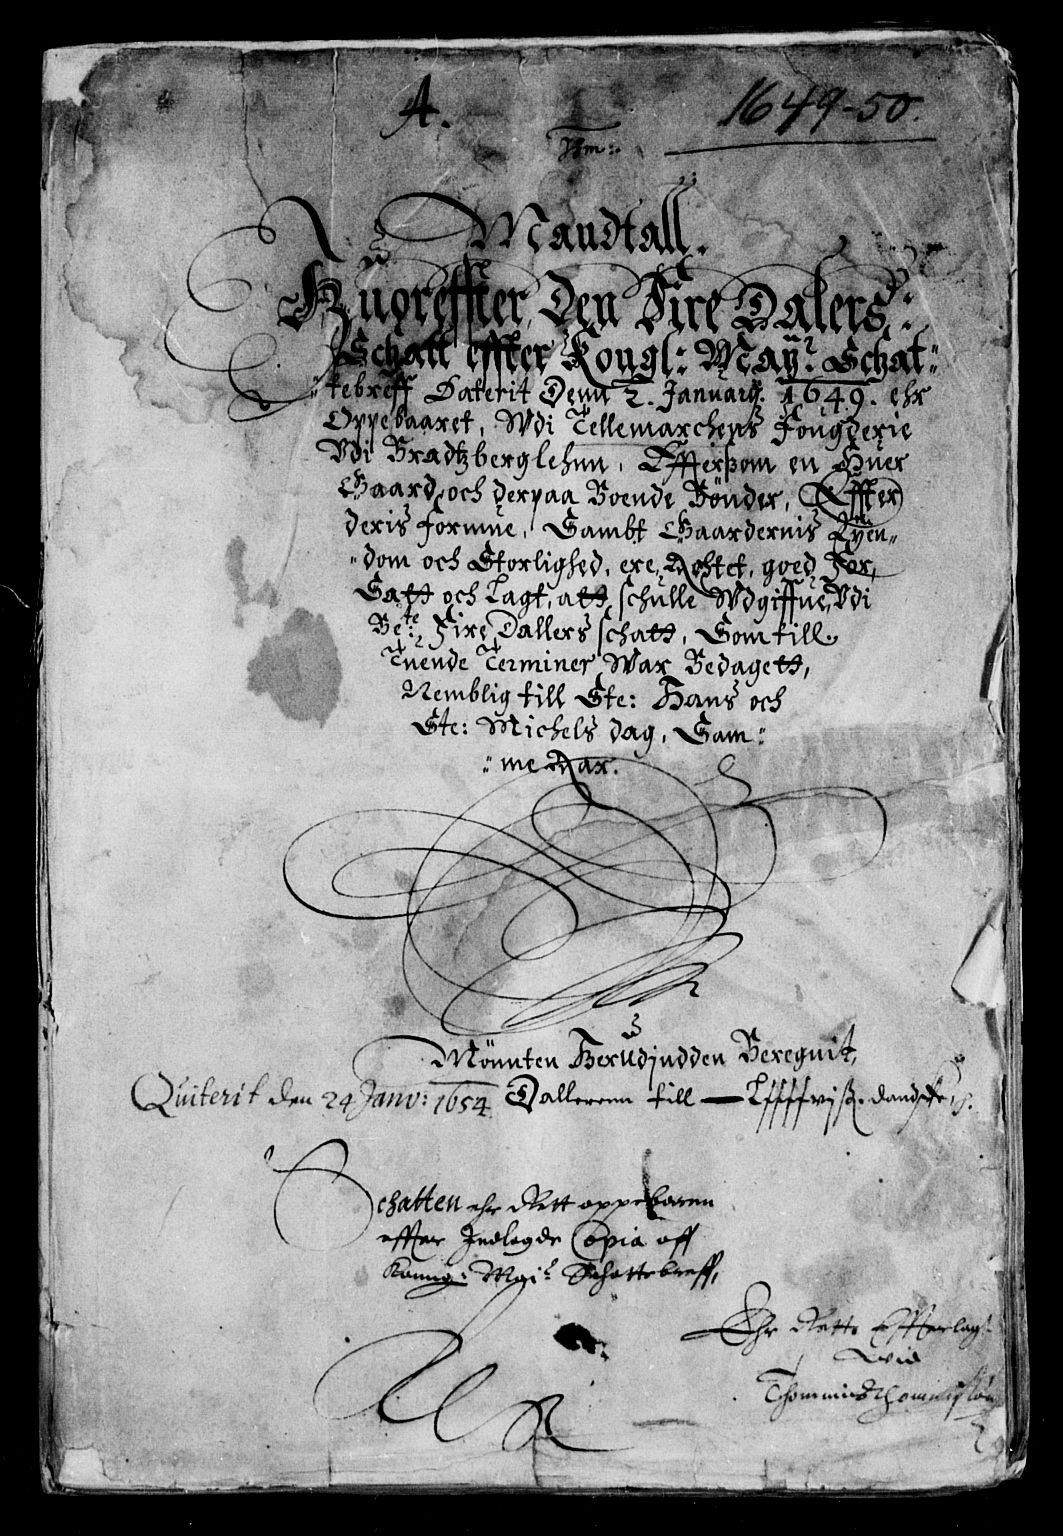 A.
1649-50.
Nm:
Mandtall.
Huoreffter, Den Fire Dalers,:
Schatt effter Kongl: May:ᵗ Schat„
„tebreff Daterit Denn 2. Januarij. 1649. ehr
Oppebaaret, Wdi Tellemarchens Fougderie
Vdi Bradtzberglehnn, Effterßom en Huer
Gaard, och derpaa Boende Bønder, Effter
deris formue, Sambt Gaardernis Eyen„
„dom och Storlighed, ere, Achtet, goed For,
Satt och Lagt, att schulle Wdgiffue, Vdi
Be:te Fire Dallers schatt, Som till
Tuende Terminer War Bedagett,
Nemblig till Ste: Hans och
Ste: Michels dag, Sam:
„me Aar.
Mönnten Herudjndden Beregnit,
Quiterit den 24 Janv: 1654 Dalleren till —
Schatten ehr Rett oppebaren
effter Indlagde Copia aff
Konng: May:ᵗ Schattebreff,
Ehr Rett Efferlagt
Wid
Thommis Thommisøn